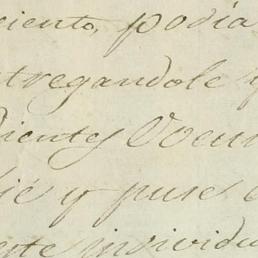 ciento, podia
ntregandole y
dientes Docum
lié y puse e
este individu